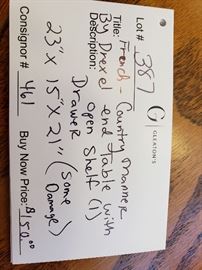 Lot# 387
G GLEATON'S
Title: French - Country Manner
By Drexel end table with
Description: open Shelf (1)
Drawer
23" x 15" x 21" (Some Damage)
Consignor # 461 Buy Now Price: $150.00